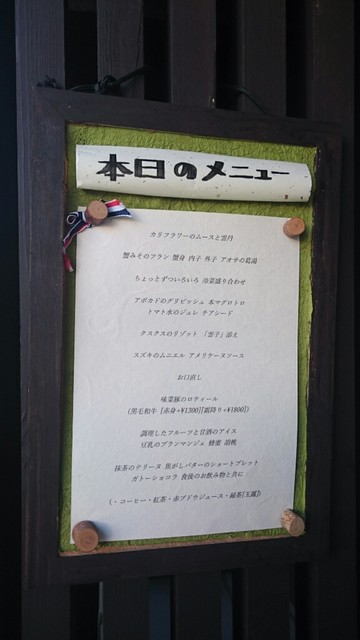 本日のメニュー
カリフラワーのムースと雲丹
蟹みそのフラン 蟹身 内子 外子 アオサの葛湯
ちょっとずついろいろ 冷菜盛り合わせ
アボカドのグリビッシュ 本マグロトロ
トマト水のジュレ チアシード
クスクスのリゾット 「雲子」添え
スズキのムニエル アメリケーヌソース
お口直し
味菜豚のロティール
(黒毛和牛 [赤身+¥1300][霜降り+¥1800])
調理したフルーツと甘酒のアイス
豆乳のブランマンジェ 蜂蜜 胡桃
抹茶のテリーヌ 焦がしバターのショートブレット
ガトーショコラ 食後のお飲み物と共に
(・コーヒー・紅茶・赤ブドウジュース・緑茶[玉露])